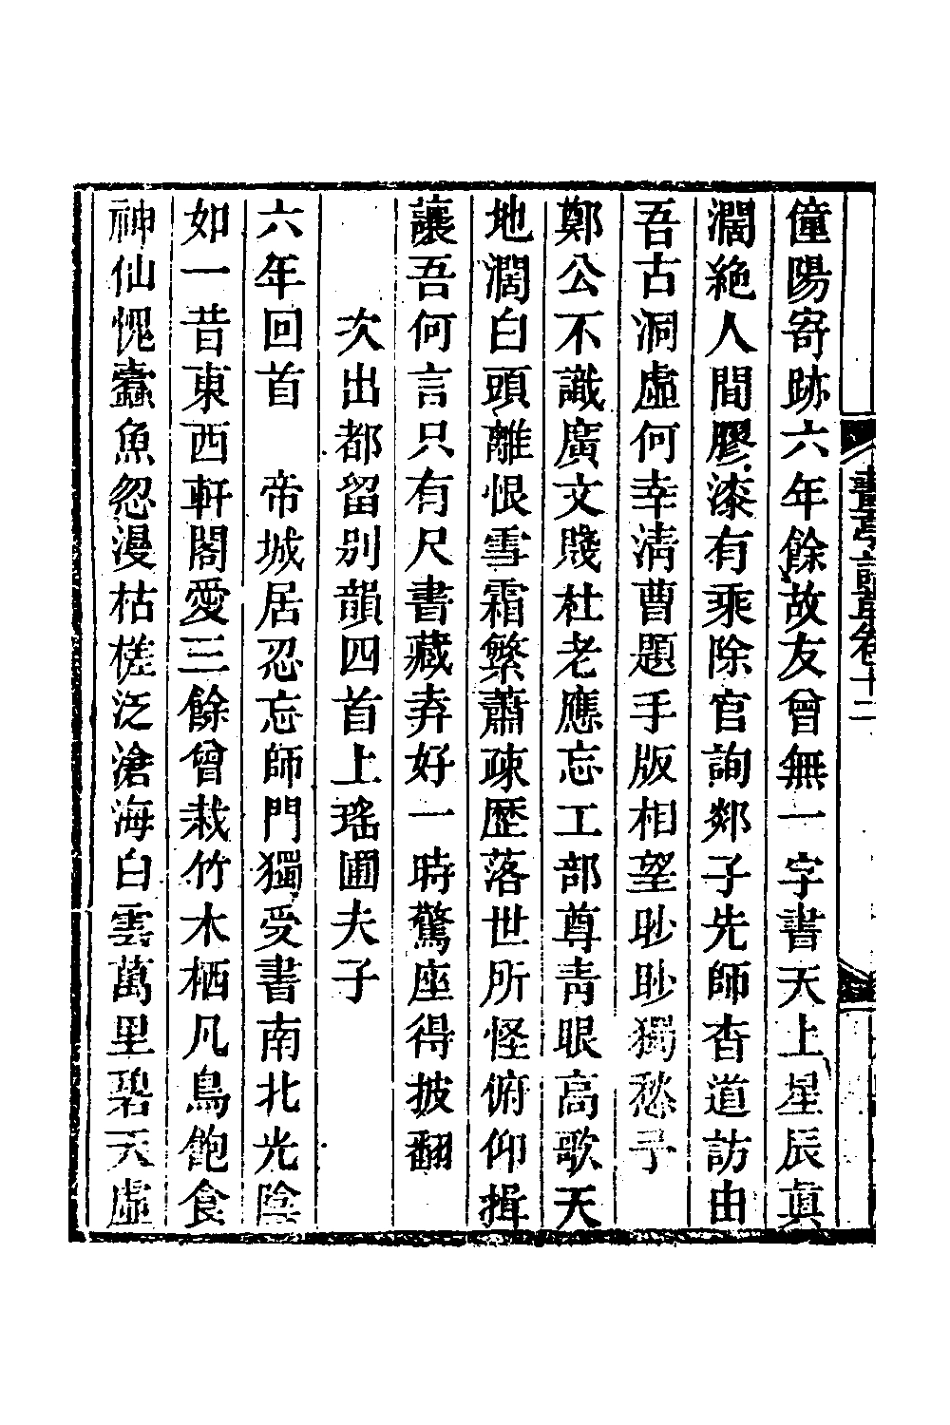 僮陽寄跡六年餘故友曾無一字書天上星辰真
濶絶人間膠漆有乘除官詢郯子先師杳道訪由
吾古洞虛何幸清曹題手版相望眇眇獨愁予
鄭公不識廣文賤杜老應忘工部尊青眼高歌天
地濶白頭離恨雪霜繁蕭疎歷落世所怪俯仰揖
讓吾何言只有尺書藏弆好一時驚座得披翻
次出都留別韻四首上瑤圃夫子
六年回首　帝城居忍忘師門獨受書南北光陰
如一昔東西軒閣愛三餘曾栽竹木栖凡鳥飽食
神仙愧蠹魚忽漫枯槎泛滄海白雲萬里碧天虛
卷十二